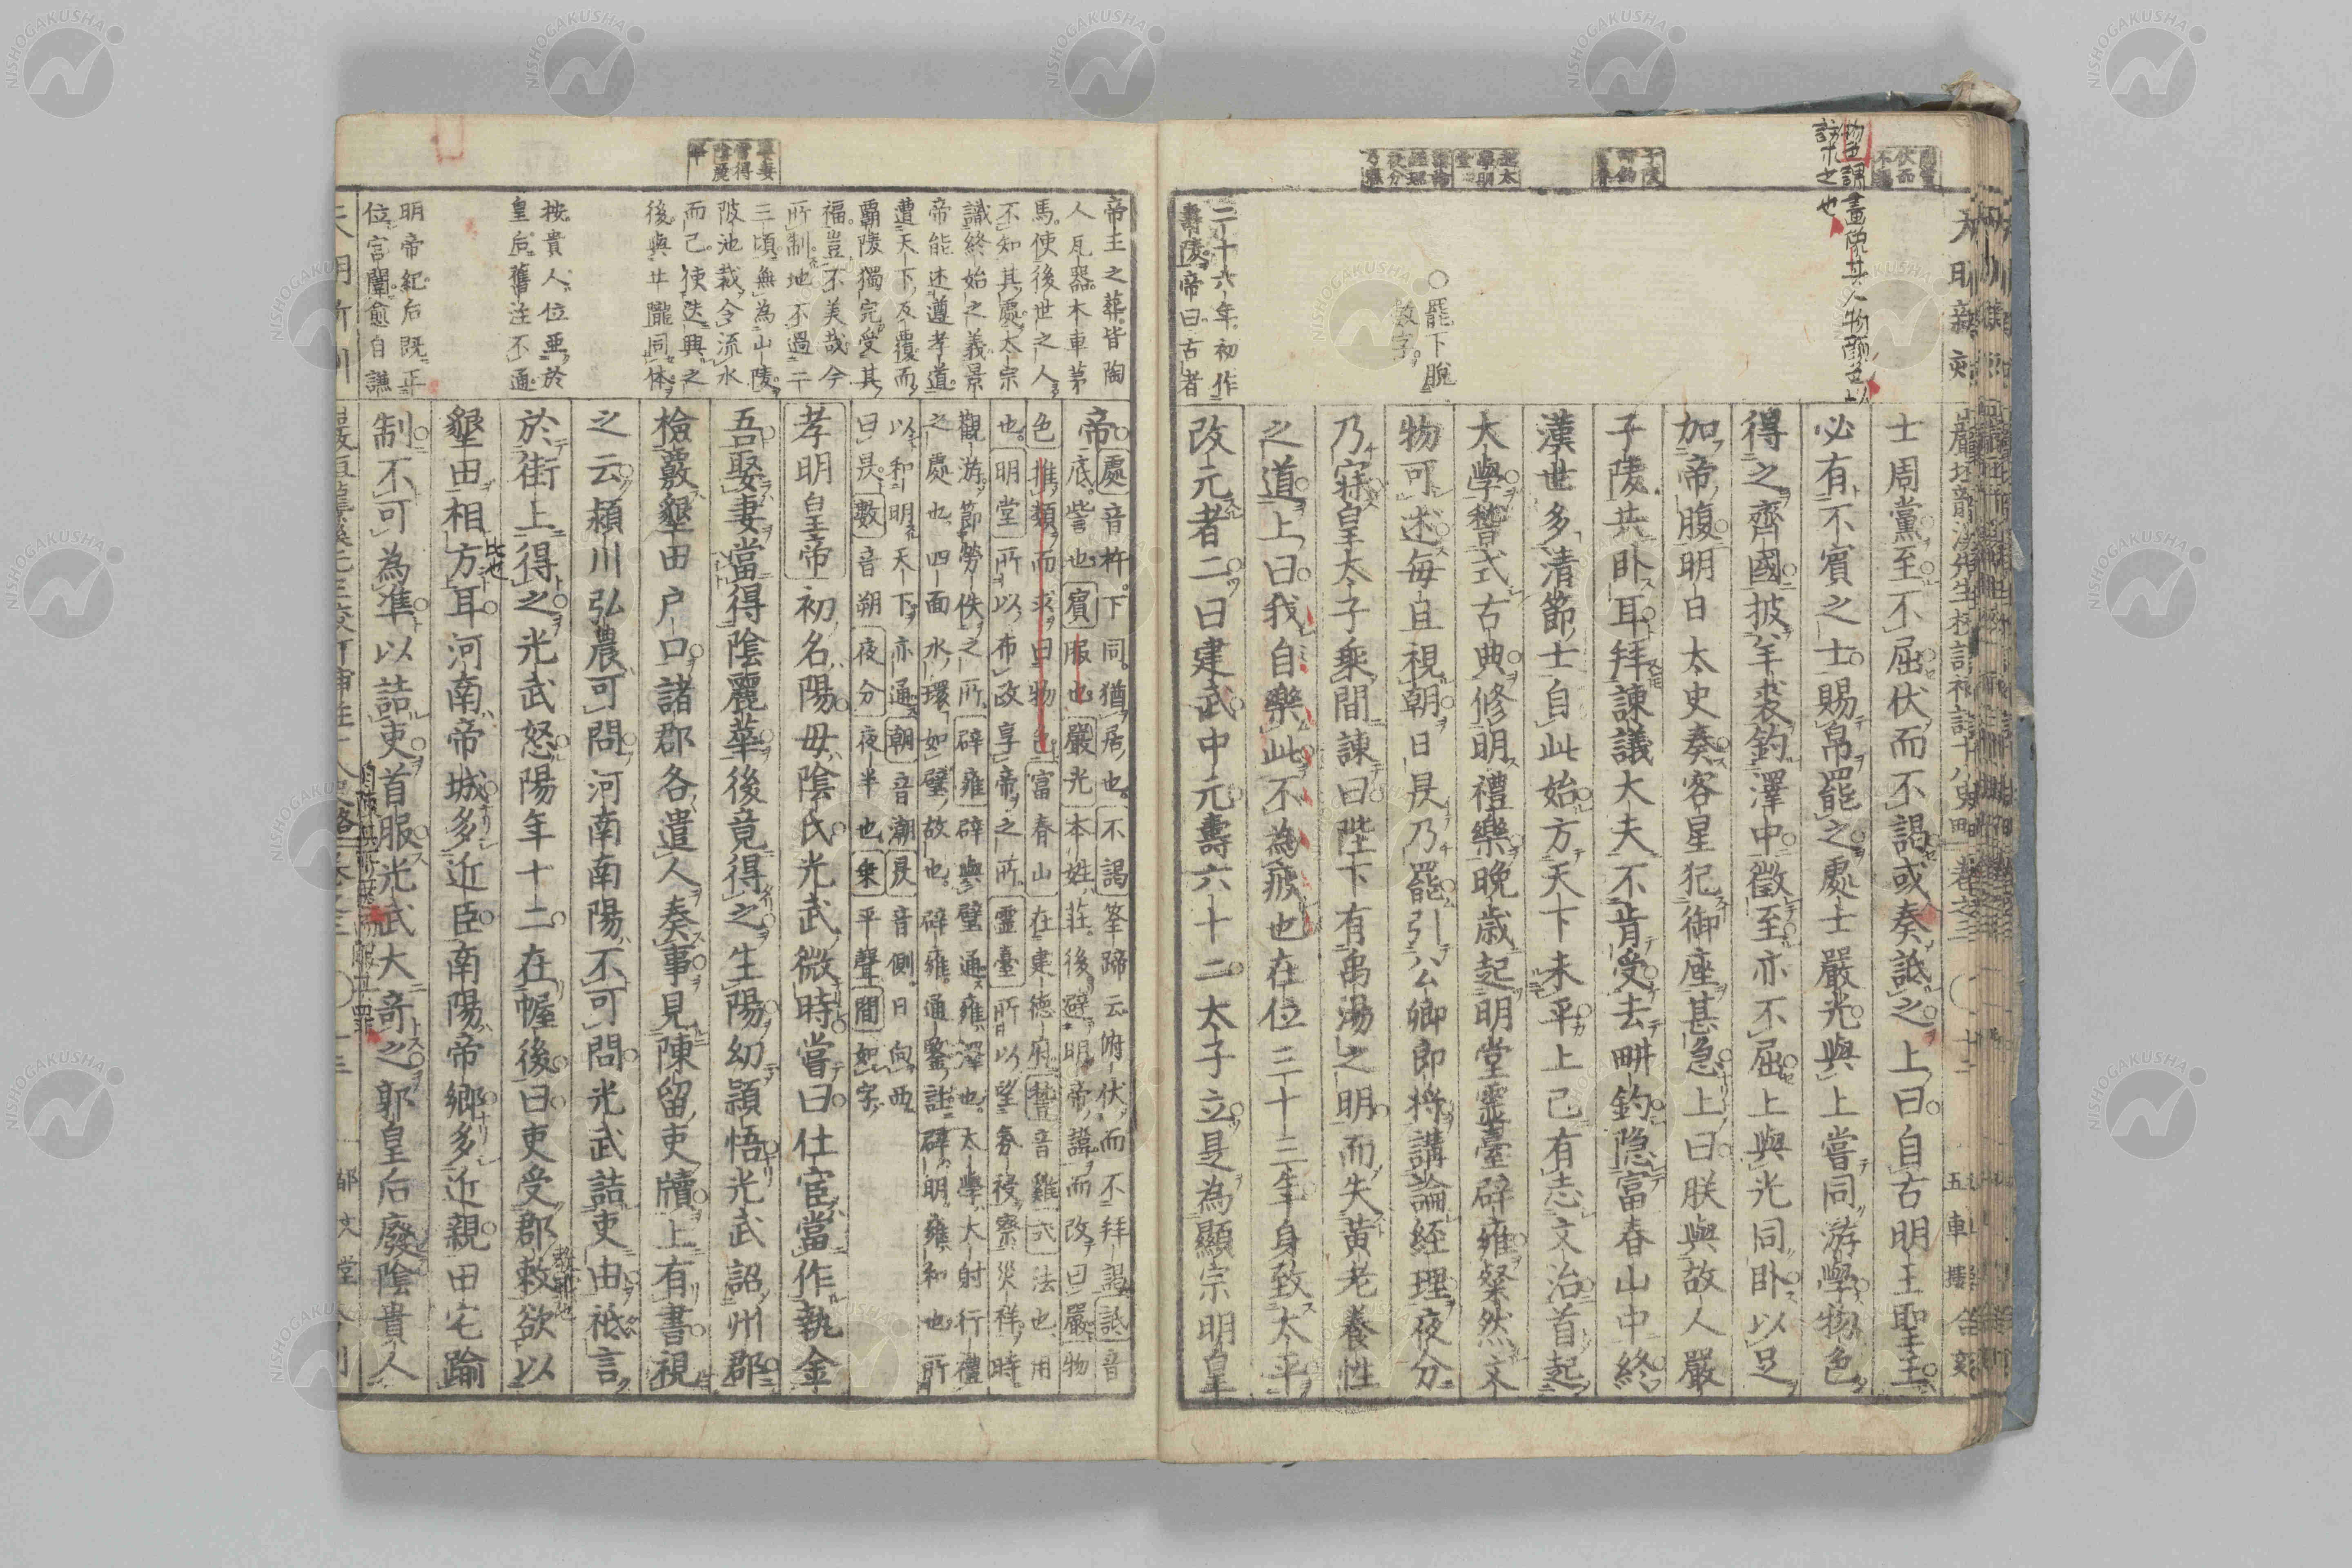 物色謂畫像其人物顏色以
訪求之也
士周黨至不屈伏而不謁或奏詆之上曰自古明王聖主
必有不賓之士賜帛罷之處士嚴光與上嘗同游學物色
得之齊國披羊裘釣澤中徵至亦不屈上與光同臥以足
加帝腹明日太史奏客星犯御座甚急上曰朕與故人嚴
子陵共臥耳拜諫議大夫不肯受去畊釣隱富春山中終
漢世多清節士自此始方天下未平上已有志文治首起
太學稽式古典修明禮樂晚歲起明堂靈臺辟雍粲然文
物可述每旦視朝日昃乃罷引公卿郎將講論經理夜分
乃寐皇太子乘間諫曰陛下有禹湯之明而失黃老養性
之道上曰我自樂此不為疲也在位三十三年身致太平
改元者二曰建武中元壽六十二太子立是為顯宗明皇
○罷下脫
數字
二十六年初作
壽陵帝曰古者
帝王之葬皆陶
人瓦器木車茅
馬使後世之人
不知其處太宗
識終始之義景
帝能述遵孝道
遭天下反覆而
霸陵獨完受其
福豈不美哉今
所制地不過二
三頃無為山陵
陂池裁令流水
而已使迭興之
後與丘隴同体
按貴人位亜於
皇后舊注不通
明帝紀后既正
位宮闈愈自謙
帝處音杵下同猶居也不謁筌蹄云俯伏而不拜謁詆音
底訾也賓服也嚴光本姓莊後避明帝諱而改曰嚴物
色推類而求曰物色富春山在建德府稽音雞式法也用
也明堂所以布政享帝之所靈臺所以望氛祲察災祥時
觀游節勞佚之所辟雍辟與璧通雍澤也太學大射行禮
之處也四面水環如璧故也辟雍通鑒註辟明雍和也所
以和明天下亦通朝音潮昃音側日向西
曰昃數音朔夜分夜半也乗平聲間如字
孝明皇帝初名陽毋陰氏光武微時嘗曰仕宦當作執金
吾娶妻當得陰麗華後竟得之生陽幼頴悟光武詔州郡
檢覈墾田户口諸郡各遣人奏事見陳留吏牘上有書視
之云潁川弘農可問河南南陽不可問光武詰吏由祗言
於街上得之光武怒陽年十二在幄後曰吏受郡敕欲以
墾田相方耳河南帝城多近臣南陽帝鄉多近親田宅踰
制不可為準以詰吏首服光武大奇之郭皇后廢陰貴人